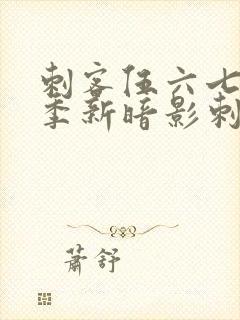 刺客伍六七
季新暗影刺
萧舒